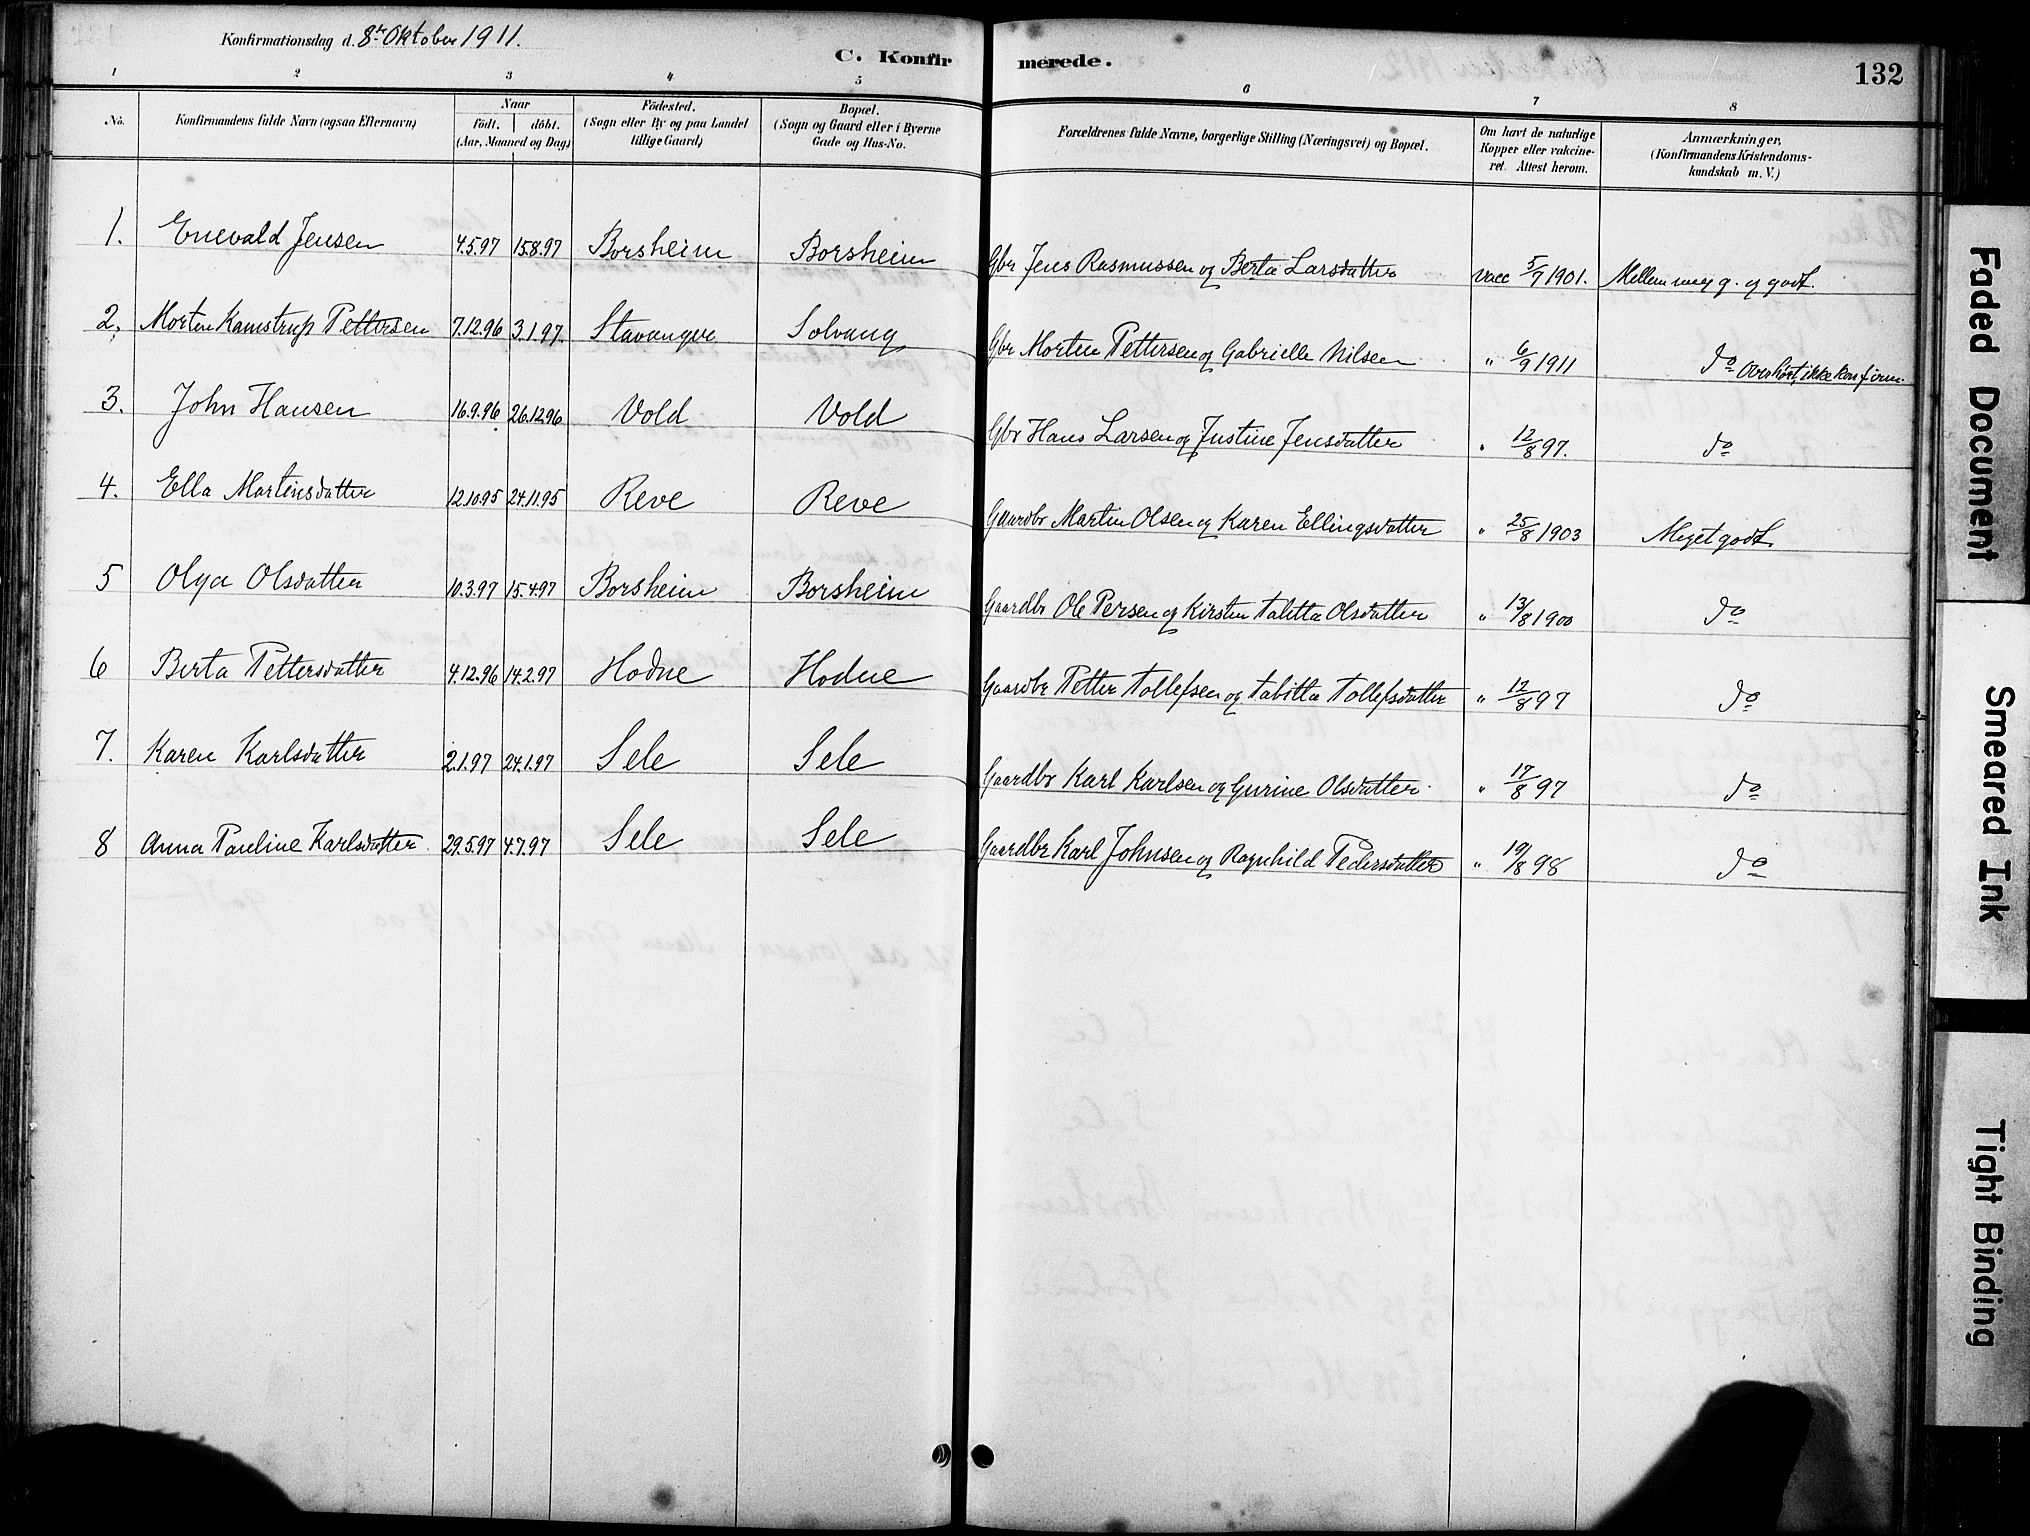 Konfirmationsdag d. 8de Oktober 1911.
C. Konfirmerede.
132
1 2 3 4 5 6 7 8
No. | Konfirmandens fulde Navn (ogsaa Efternavn) | Naar födt. | döbt. (Aar, Maaned og Dag) | Födested. (Sogn eller By og paa Landet tillige Gaard) | Bopæl. (Sogn og Gaard eller i Byerne Gade og Hus-No. | Forældrenes fulde Navne, borgerlige Stilling (Næringsvei) og Bopæl. | Om havt de naturlige Kopper eller vakcineret. Attest herom. | Anmærkninger, (Konfirmandens Kristendomskundskab m. V.)
1. Enevald Jensen 4.5.97 15.8.97 Borsheim Borsheim Gbr Jens Rasmussen og Berta Larsdatter vacc 5/7 1901. Mellem meg g. og godt.
2. Morten Kamstrup Pettersen 7.12.96 3.1.97. Stavanger Solvang Gbr Morten Pettersen og Gabrielle Nilsen " 6/9 1911 do Overhørt, ikke konfirm.
3. John Hansen 16.9.96 26.12.96 Vold Vold Gbr Hans Larsen og Justine Jensdatter " 12/8 97. do
4. Ella Martinsdatter 12.10.95 24.11.95 Reve Reve Gaardbr Martin Olsen og Karen Ellingsdatter " 25/8 1903 Meget godt
5 Olga Olsdatter 10.3.97 15.4.97 Borsheim Borsheim Gaardbr Ole Persen og Kirsten Tabitta Olsdatter " 13/8 1900 do
6 Berta Pettersdatter 4.12.96 14.2.97 Hodne Hodne Gaardbr Petter Tollefsen og Tabitta Tollefsdatter " 12/8 97 do
7. Karen Karlsdatter 2.1.97 24.1.97 Sele Sele Gaardbr Karl Karlsen og Gurine Olsdatter. " 17/8 97 do
8 Anna Pauline Karlsdatter. 29.5.97 4.7.97 Sele Sele Gaardbr Karl Johnsen og Ragnhild Pedersdatter " 19/8 98 do
Faded Document
Smeared Ink
Tight Binding